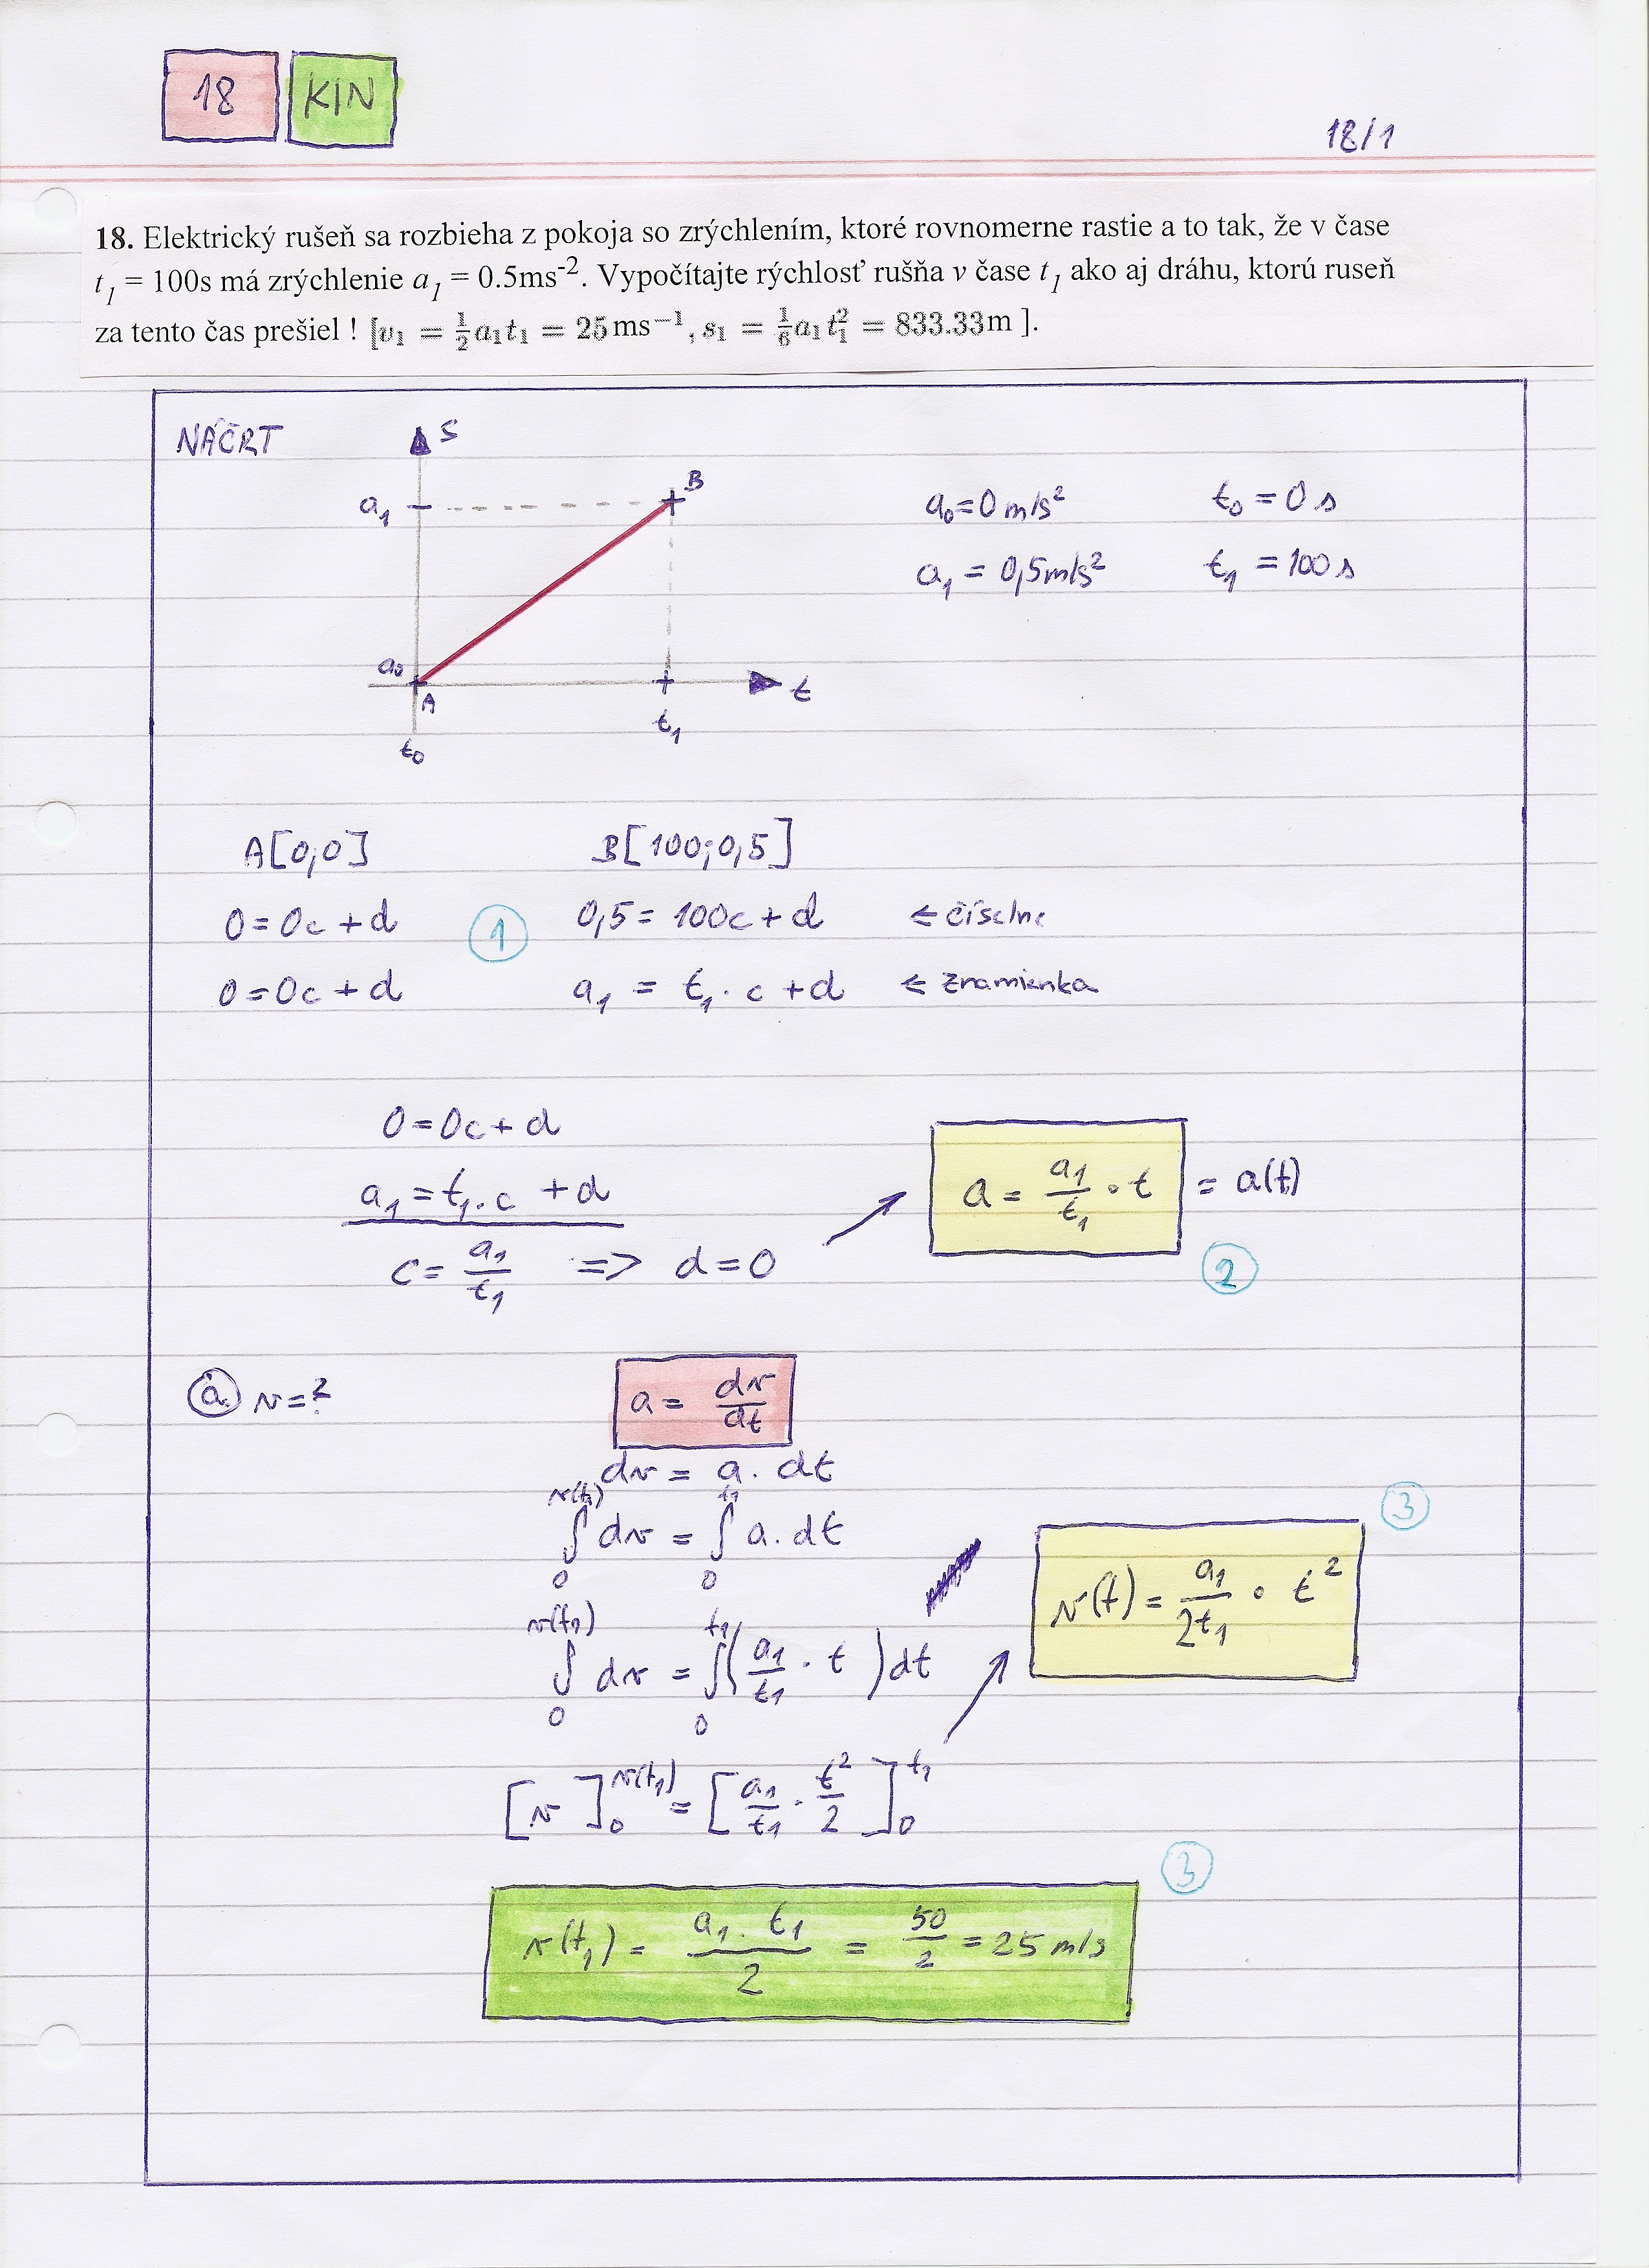 18 KIN
18/1
18. Elektrický rušeň sa rozbieha z pokoja so zrýchlením, ktoré rovnomerne rastie a to tak, že v čase
t₁ = 100s má zrýchlenie a₁ = 0.5ms⁻². Vypočítajte rýchlosť rušňa v čase t₁ ako aj dráhu, ktorú ruseň
za tento čas prešiel ! [v₁ = ½a₁t₁ = 25ms⁻¹, s₁ = ⅙a₁t₁² = 833.33m ].
NÁČRT
s
a₁
B
a₀=0 m/s² t₀ = 0 s
a₁ = 0,5m/s² t₁ = 100 s
a₀
A
t
t₀
t₁
A[0,0] B[100;0,5]
0=0c+d ① 0,5=100c+d ← číselne
0=0c+d a₁ = t₁·c+d ← znamienka
0=0c+d
a₁=t₁·c+d
c= a₁/t₁ => d=0
a = a₁/t₁ · t = a(t)
②
ⓐ v=?
a = dv/dt
dv = a. dt
∫₀^v(t₁) dv = ∫₀^t₁ a. dt
∫₀^v(t₁) dv = ∫₀^t₁ (a₁/t₁ · t)dt
③
v(t)= a₁/2t₁ · t²
[v]₀^v(t₁) = [a₁/t₁ · t²/2]₀^t₁
③
v(t₁)= a₁.t₁/2 = 50/2 =25 m/s